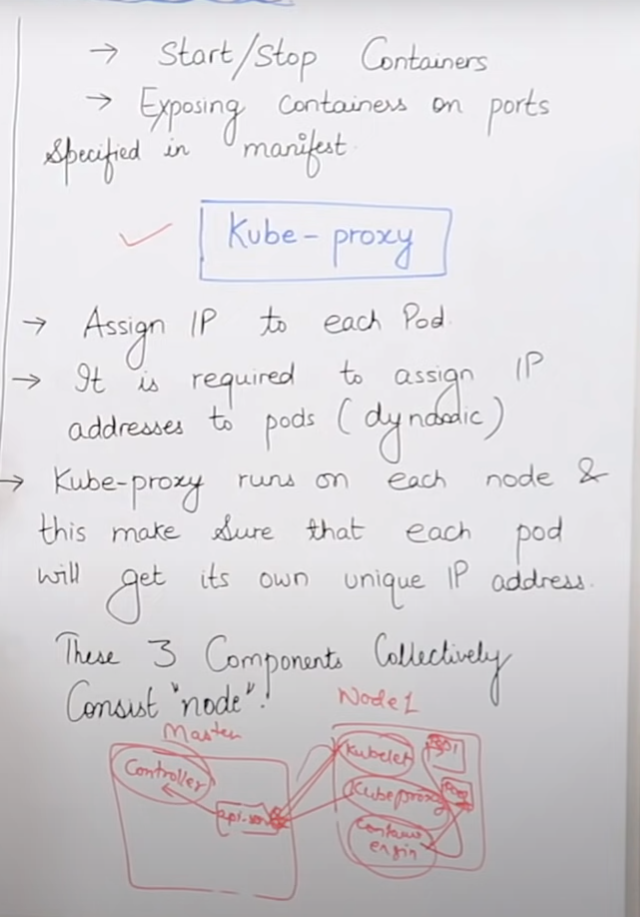 → Start/Stop Containers
→ Exposing Containers on ports
specified in manifest.
Kube-proxy
→ Assign IP to each Pod.
→ It is required to assign IP
addresses to pods (dynamic)
→ Kube-proxy runs on each node &
this make sure that each pod
will get its own unique IP address.
These 3 Components Collectively
Consist "node".
Node 1
Master
Controller
api-
Kubelet
Kubeproxy